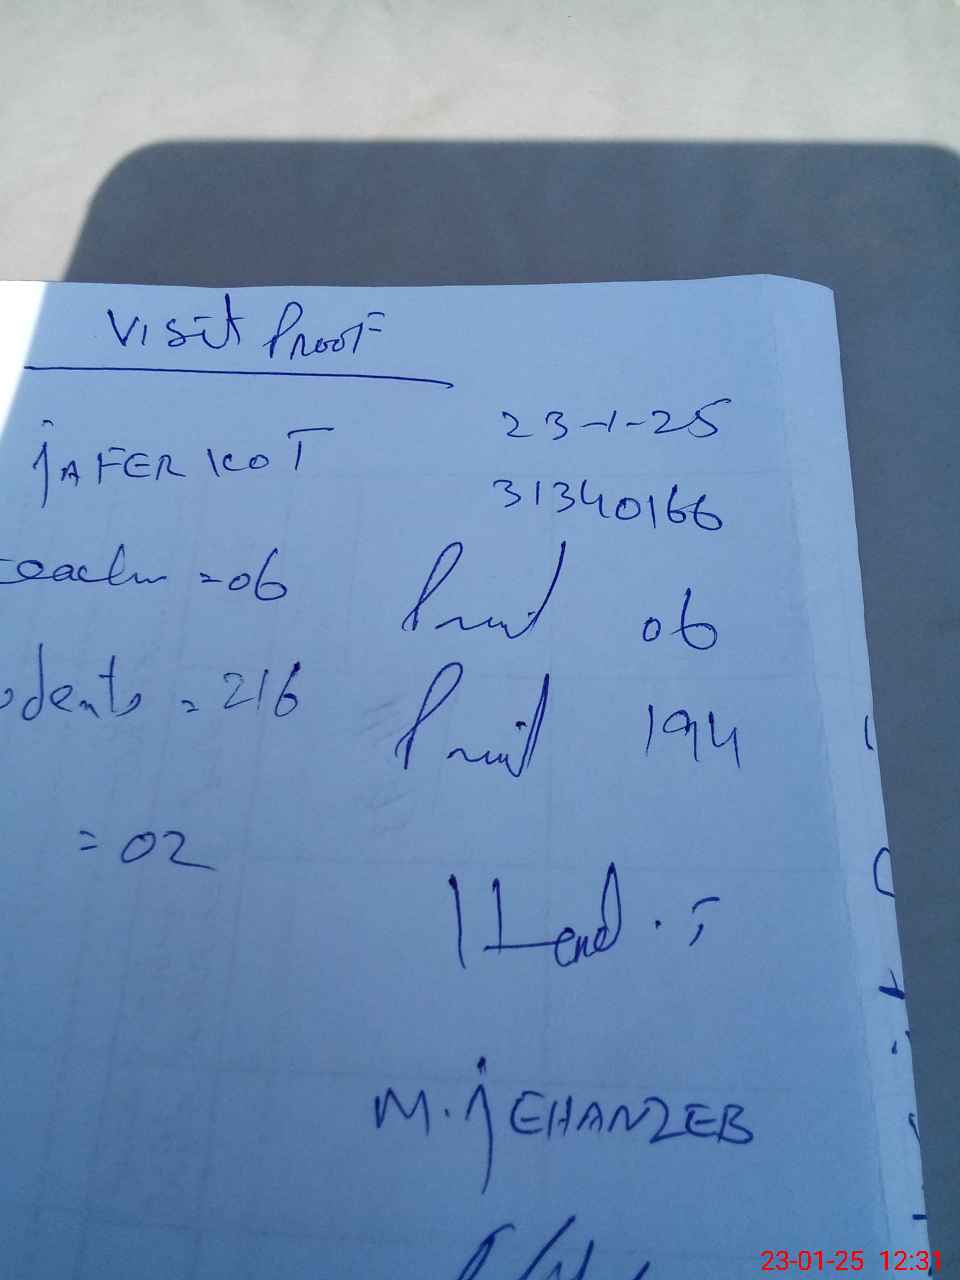 Visit Proof
jAFER KOT 23-1-25
31340166
teacher = 06 06
udents = 216 194
= 02
Head . T
M. jEHANZEB
23-01-25 12:31